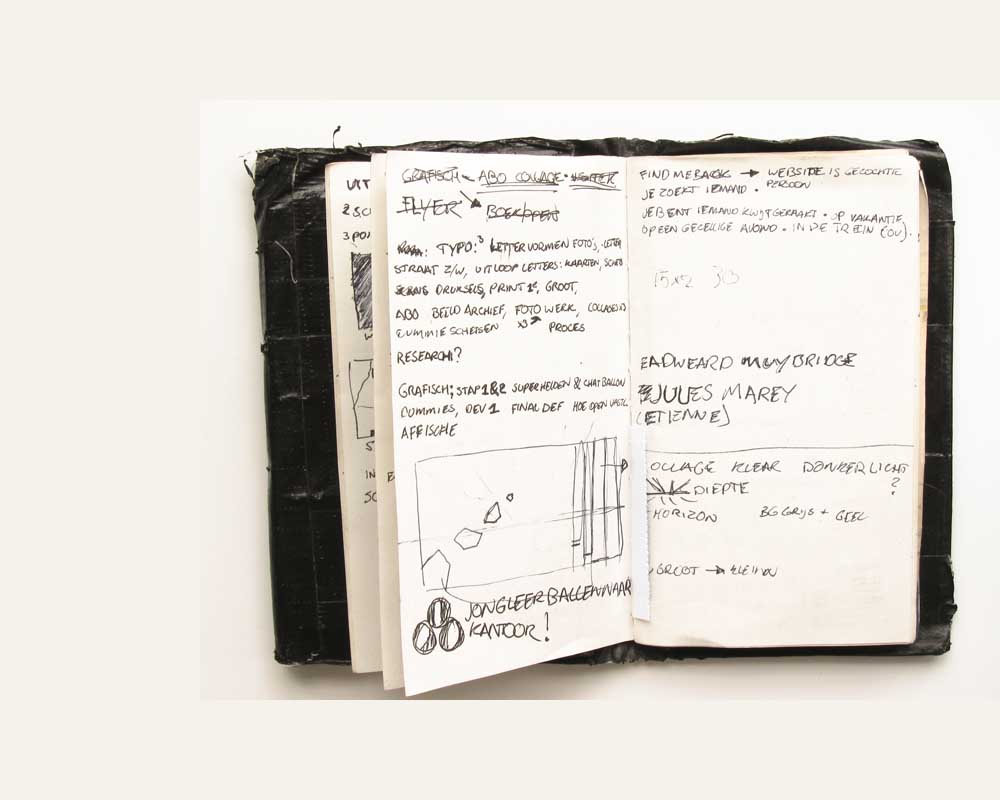 UIT
3 PO
GRAFISCH ABO COLLAGE
FLYER BOEK/OPEN
TYPO: LETTERVORMEN FOTO'S,
STRAAT Z/W, UITLOOP LETTERS: KAARTEN,
DRUKSELS, PRINT 1e, GROOT,
ABO BEELD ARCHIEF, FOTO WERK,
x3 PROCES
RESEARCH?
GRAFISCH: STAP 1&2 SUPERHELDEN & CHATBALLON
DUMMIES, DEV 1 FINAL DEF HOE OPEN
AFFISCHE
JONGLEER BALLEN NAAR
KANTOOR!
FIND ME BACK → WEBSIDE IS GELOCHTIE
JE ZOEKT IEMAND • PERSOON
JE BENT IEMAND KWIJTGERAAKT • OP VAKANTIE,
OP EEN GEZELLIGE AVOND • IN DE TREIN (OV).
15x2 33
EADWEARD MUYBRIDGE
JULES MAREY
(ETIENNE)
OLLAGE KLEAR DONKER LICHT
DIEPTE ?
HORIZON BG GRIJS + GEEL
GROOT → KLEIN